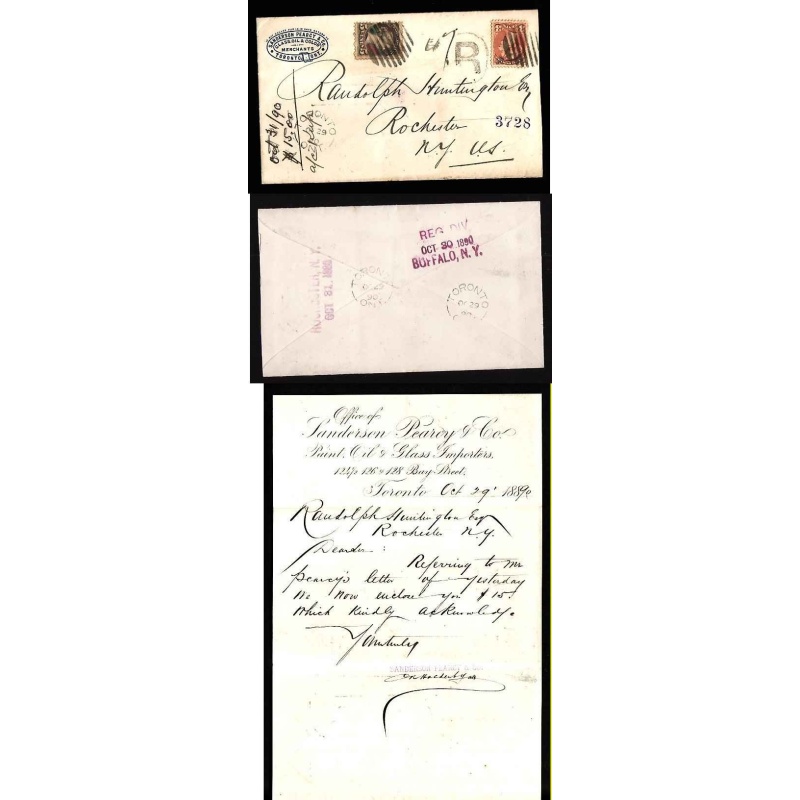 SANDERSON PEARCY & CO.
GLASS, OIL & COLOR
MERCHANTS
TORONTO, ONT
R
Randolph Huntington Esq
Rochester
N.Y. U.S.
3728
Oct 31/90
$15.00
TORONTO
29
REG. DIV.
OCT 30 1890
BUFFALO, N.Y.
ROCHESTER, N.Y.
OCT 31 1890
TORONTO
TORONTO
OC 29
90
Office of
Sanderson Pearcy & Co.
Paint, Oil & Glass Importers,
124½ 126 & 128 Bay Street,
Toronto Oct 29' 1890
Randolph Huntington Esq
Rochester N.Y.
Dear Sir:
Referring to Mr
Pearcy's letter of yesterday
we now enclose you $15.
which kindly acknowledge.
Yours truly
SANDERSON PEARCY & CO.